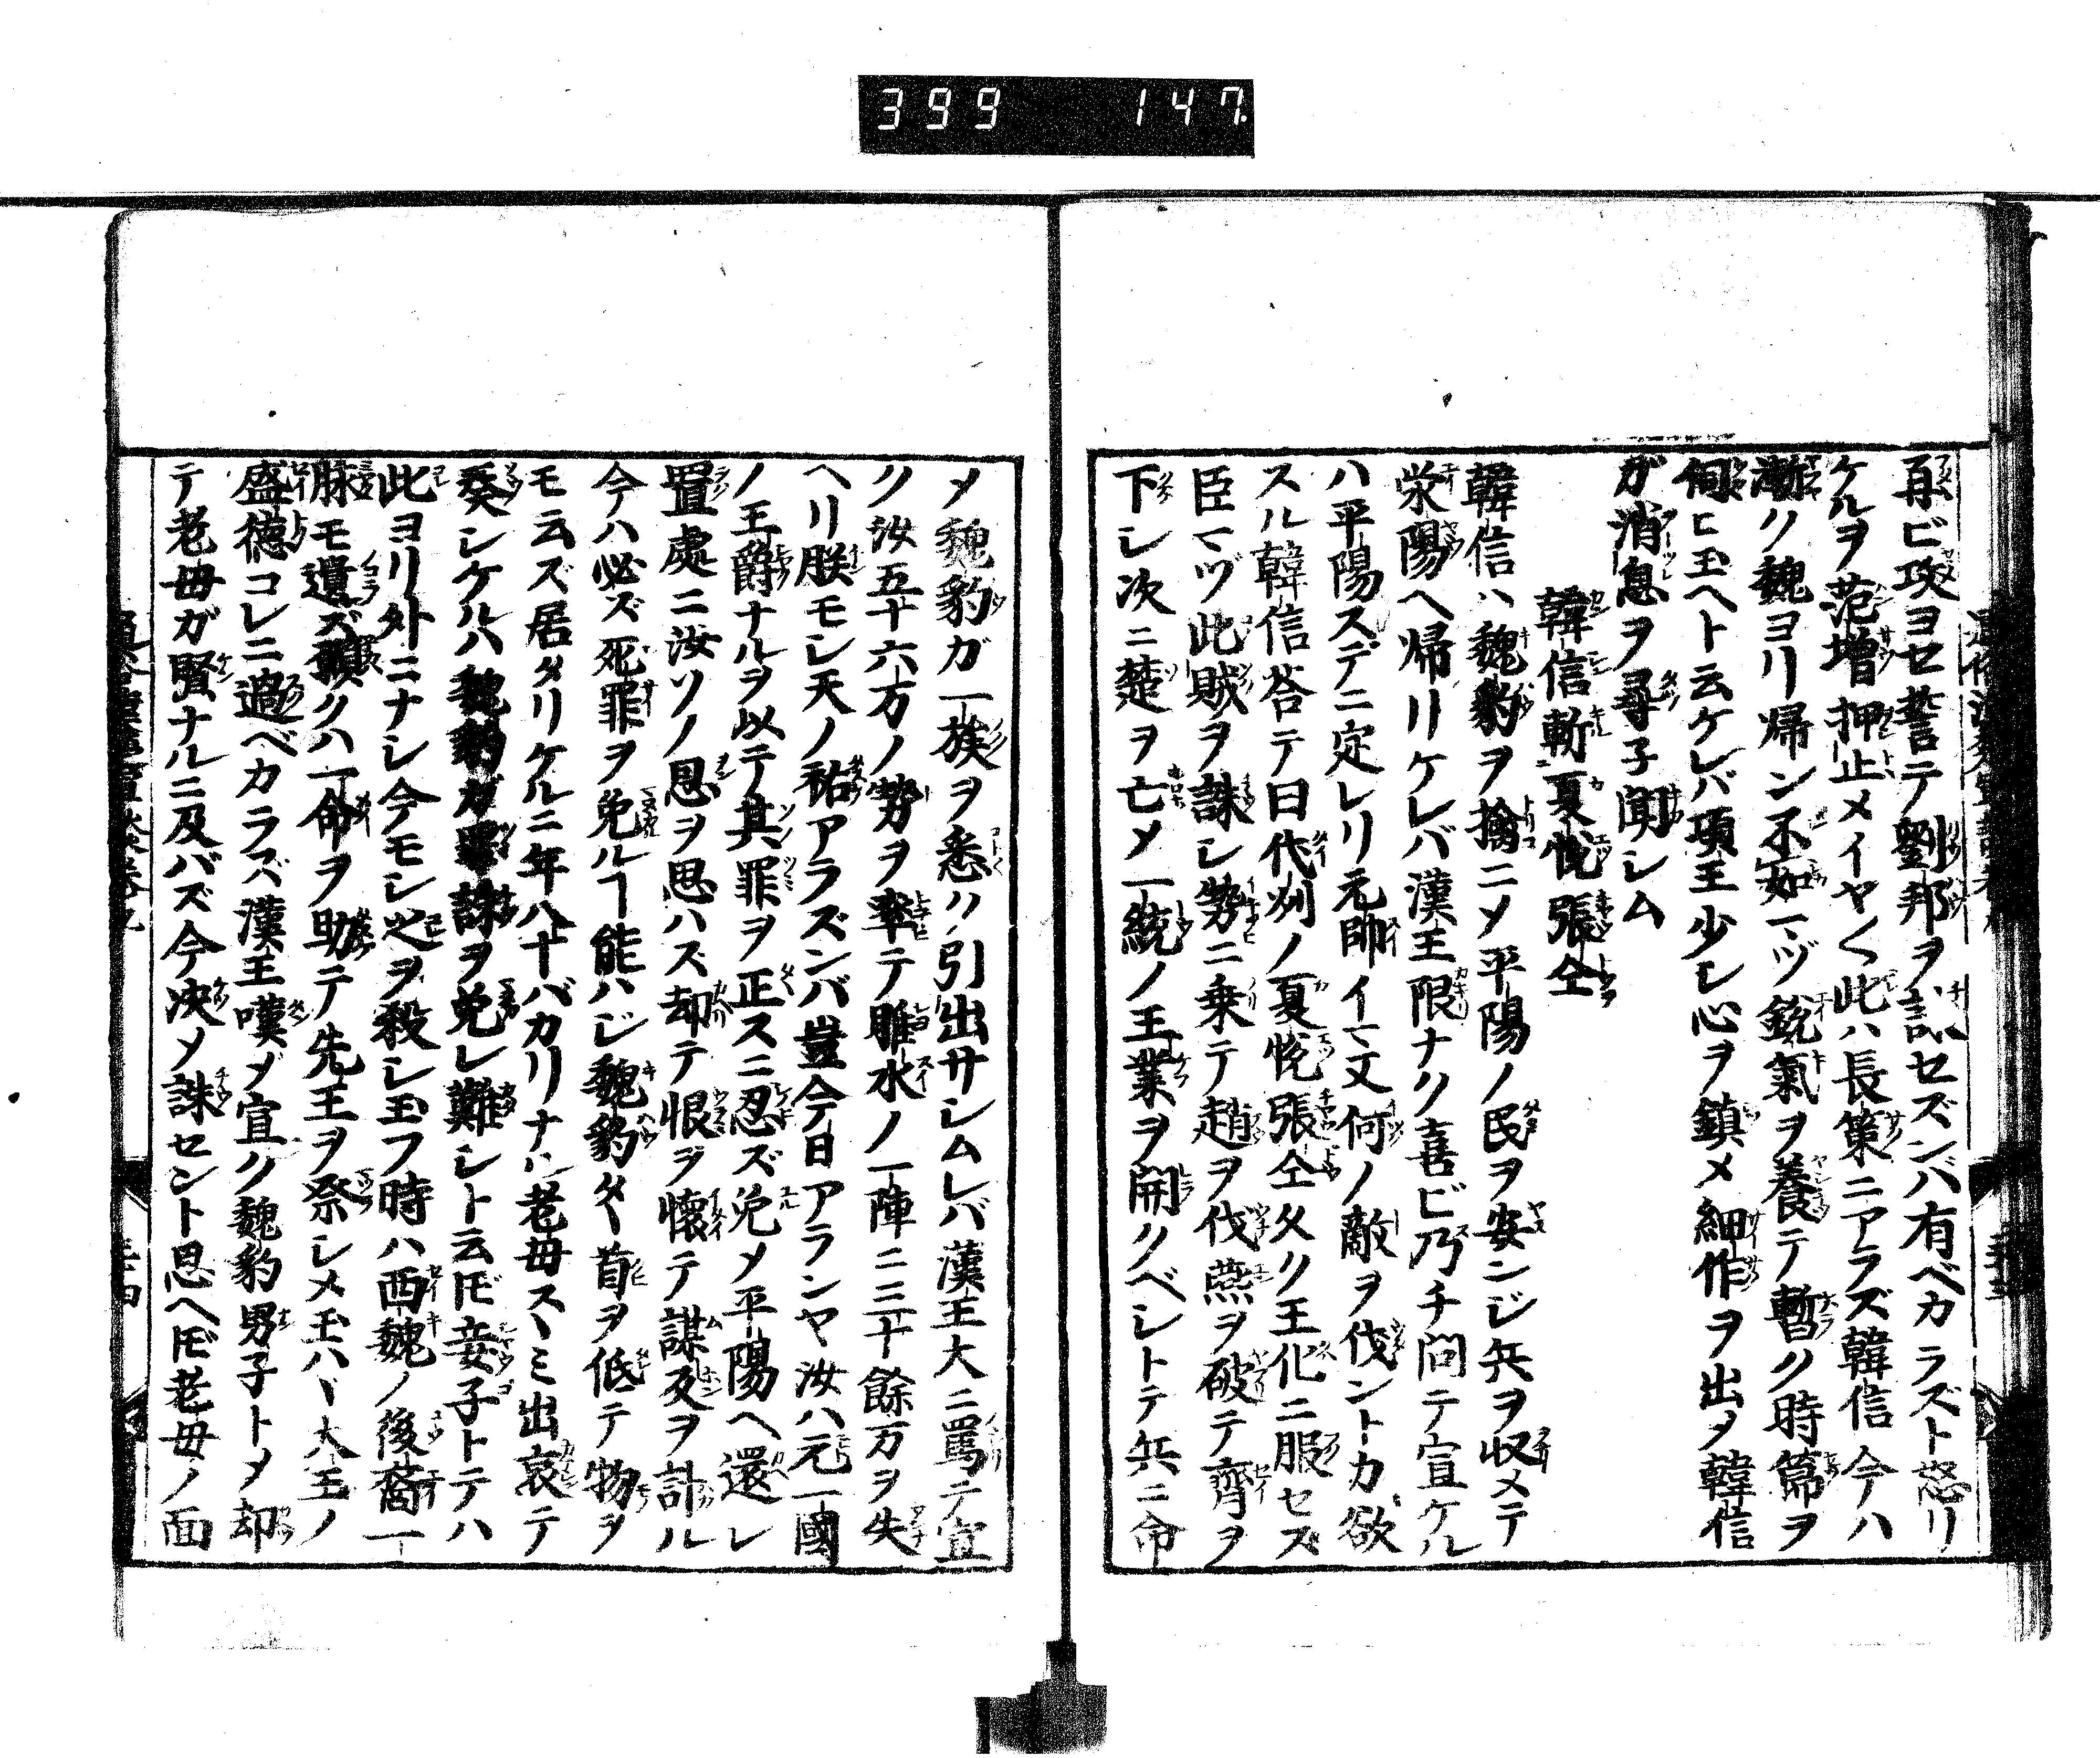 399 147
再ビ攻ヨセ誓テ劉邦ヲ誅セズンバ有ベカラズト怒リ
ケルヲ范増押止メイヤ〱此ハ長策ニアラズ韓信今ハ
漸ク魏ヨリ帰ン不如一ヅ銳氣ヲ養テ暫ク時節ヲ
伺ヒ玉ヘト云ケレバ項王少シ心ヲ鎮メ細作ヲ出メ韓信
ガ消息ヲ尋子聞シム
韓信斬夏悦張仝
韓信ハ魏豹ヲ擒ニメ平陽ノ民ヲ安ンジ兵ヲ収メテ
滎陽ヘ帰リケレバ漢王限ナク喜ビ乃チ問テ宣ケル
ハ平陽スデニ定レリ元帥イマ又何ノ敵ヲ伐ントカ欲
スル韓信荅テ曰代州ノ夏悦張仝久ク王化ニ服セズ
臣マヅ此賊ヲ誅シ勢ニ乗テ趙ヲ伐燕ヲ破テ齊ヲ
下シ次ニ楚ヲ亡メ一統ノ王業ヲ開クベシトテ兵ニ命
メ魏豹ガ一族ヲ悉ク引出サシムレバ漢王大ニ罵テ宣
ク汝五十六万ノ勢ヲ率テ睢水ノ一陣ニ三十餘万ヲ失
ヘリ朕モシ天ノ祐アラズンバ豈今日アランヤ汝ハ元一國
ノ王爵ナルヲ以テ其罪ヲ正スニ忍ズ免メ平陽ヘ還シ
置處ニ汝ソノ恩ヲ思ハズ却テ恨ヲ懷テ謀反ヲ計ル
今ハ必ズ死罪ヲ免ルヿ能ハジ魏豹タヾ首ヲ低テ物ヲ
モ云ズ居タリケルニ年八十バカリナル老母スヽミ出哀テ
奏シケルハ魏豹ガ罪誅ヲ免レ難シト云𪜈妾子トテハ
此ヨリ外ニナシ今モシ之ヲ殺シ玉フ時ハ西魏ノ後裔一
脉モ遺ズ願クハ一命ヲ助テ先王ヲ祭シメ玉ハヾ大王ノ
盛德コレニ過ベカラズ漢王嘆メ宣ク魏豹男子トメ却
テ老母ガ賢ナルニ及バズ今决メ誅セント思ヘ𪜈老母ノ面